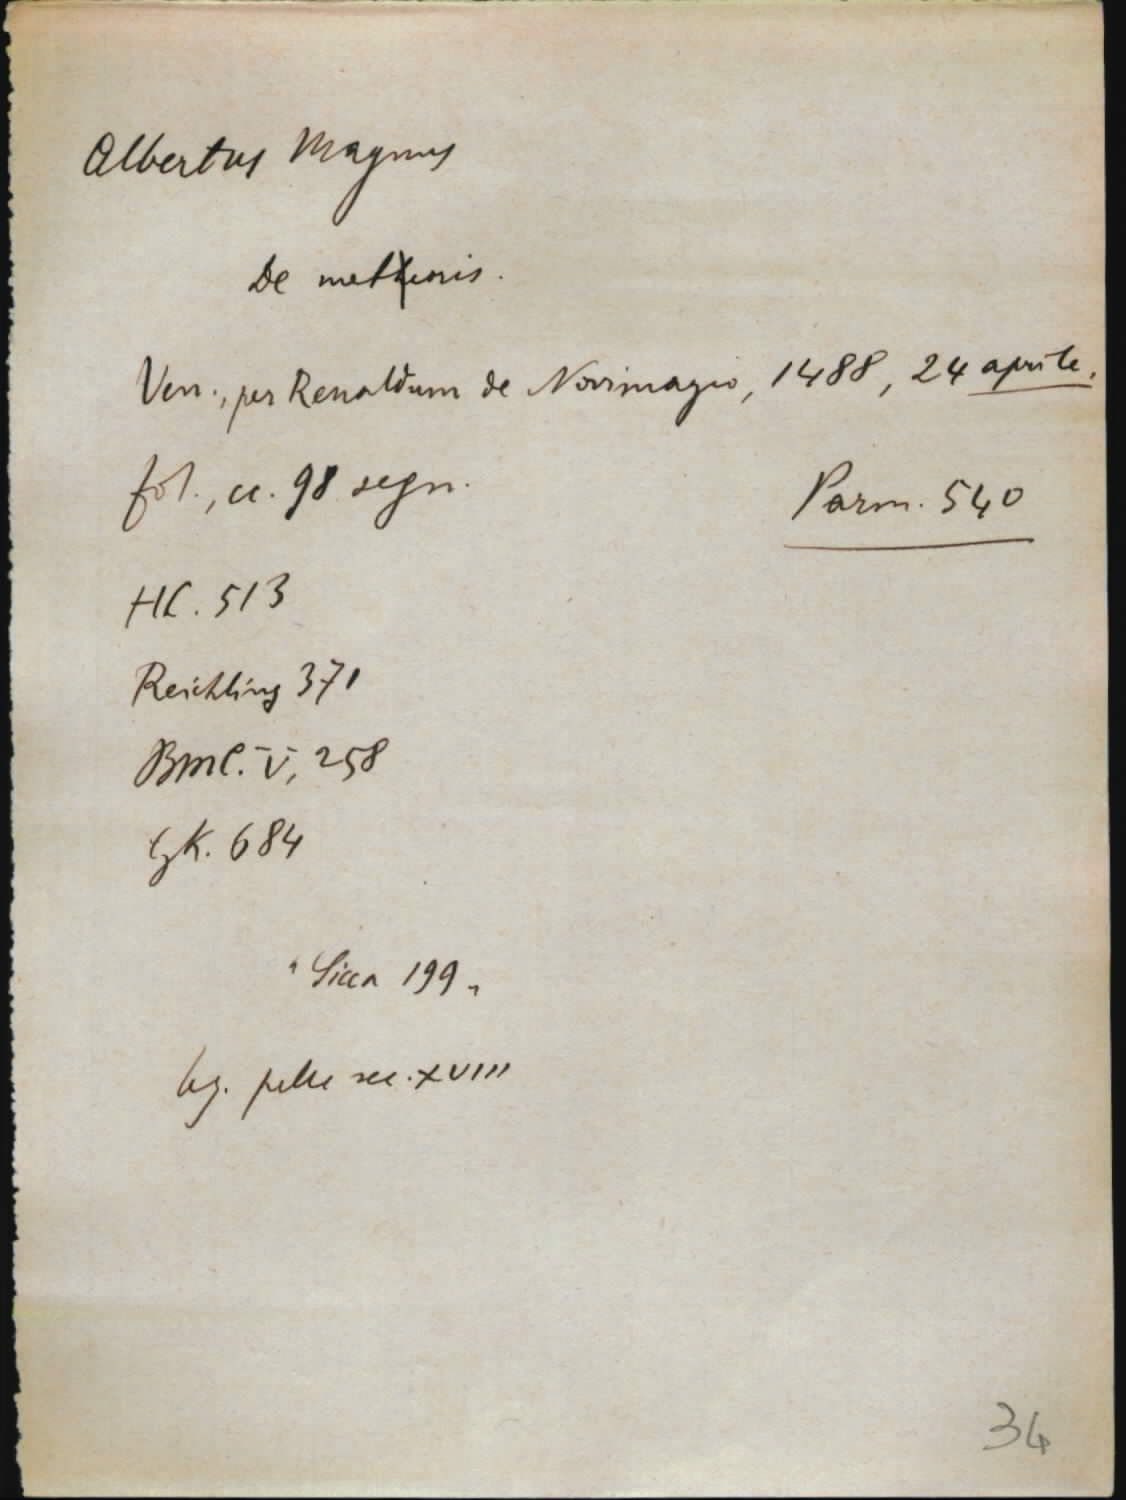 Albertus Magnus
De metheoris.
Ven., per Renaldum de Novimagio, 1488, 24 aprile.
fol., cc. 98 segn.
Parm. 540
HC. 513
Reichling 371
BMC. V, 258
GK. 684
"Sicca 199"
leg. pelle sec. XVIII
34